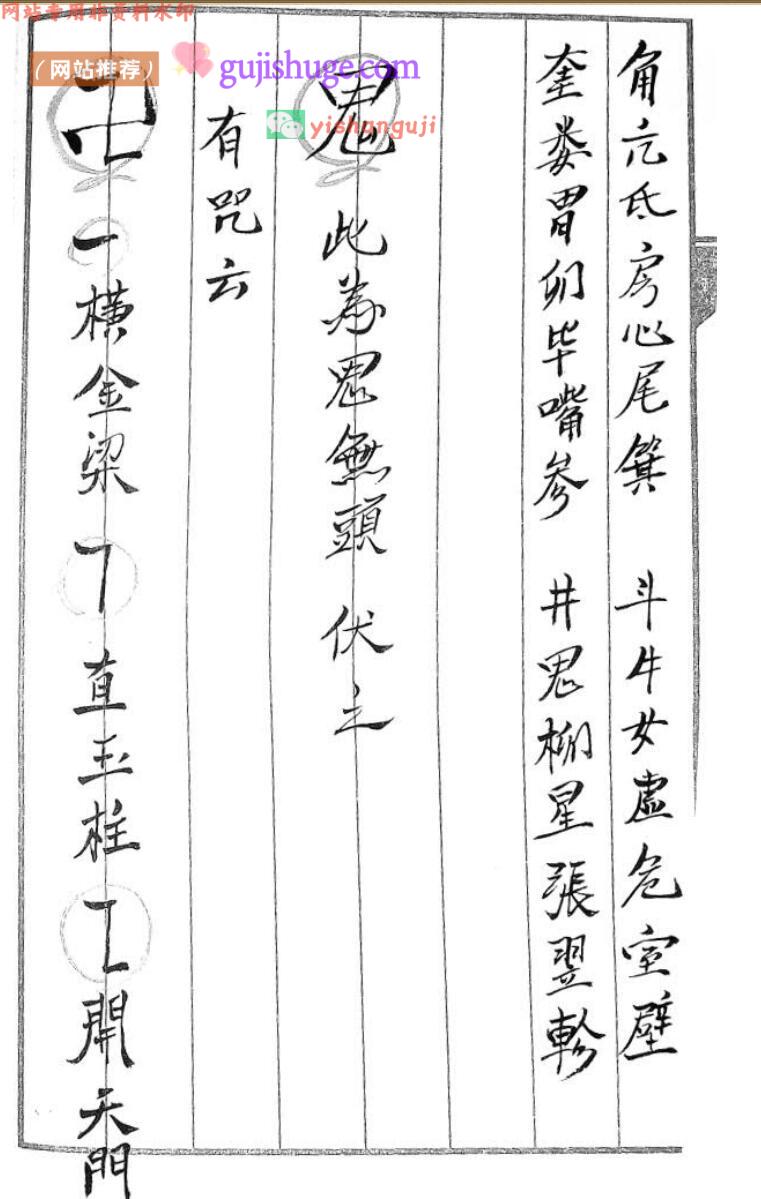 网站专用非资料水印
（网站推荐）
gujishuge.com
yishanguji
角亢氐房心尾箕 斗牛女虚危室壁
奎娄胃卯毕嘴参 井鬼柳星張翌軫
鬼 此为鬼無頭 伏之
有咒云
卍 一横金梁 ㇕直玉柱 開天門